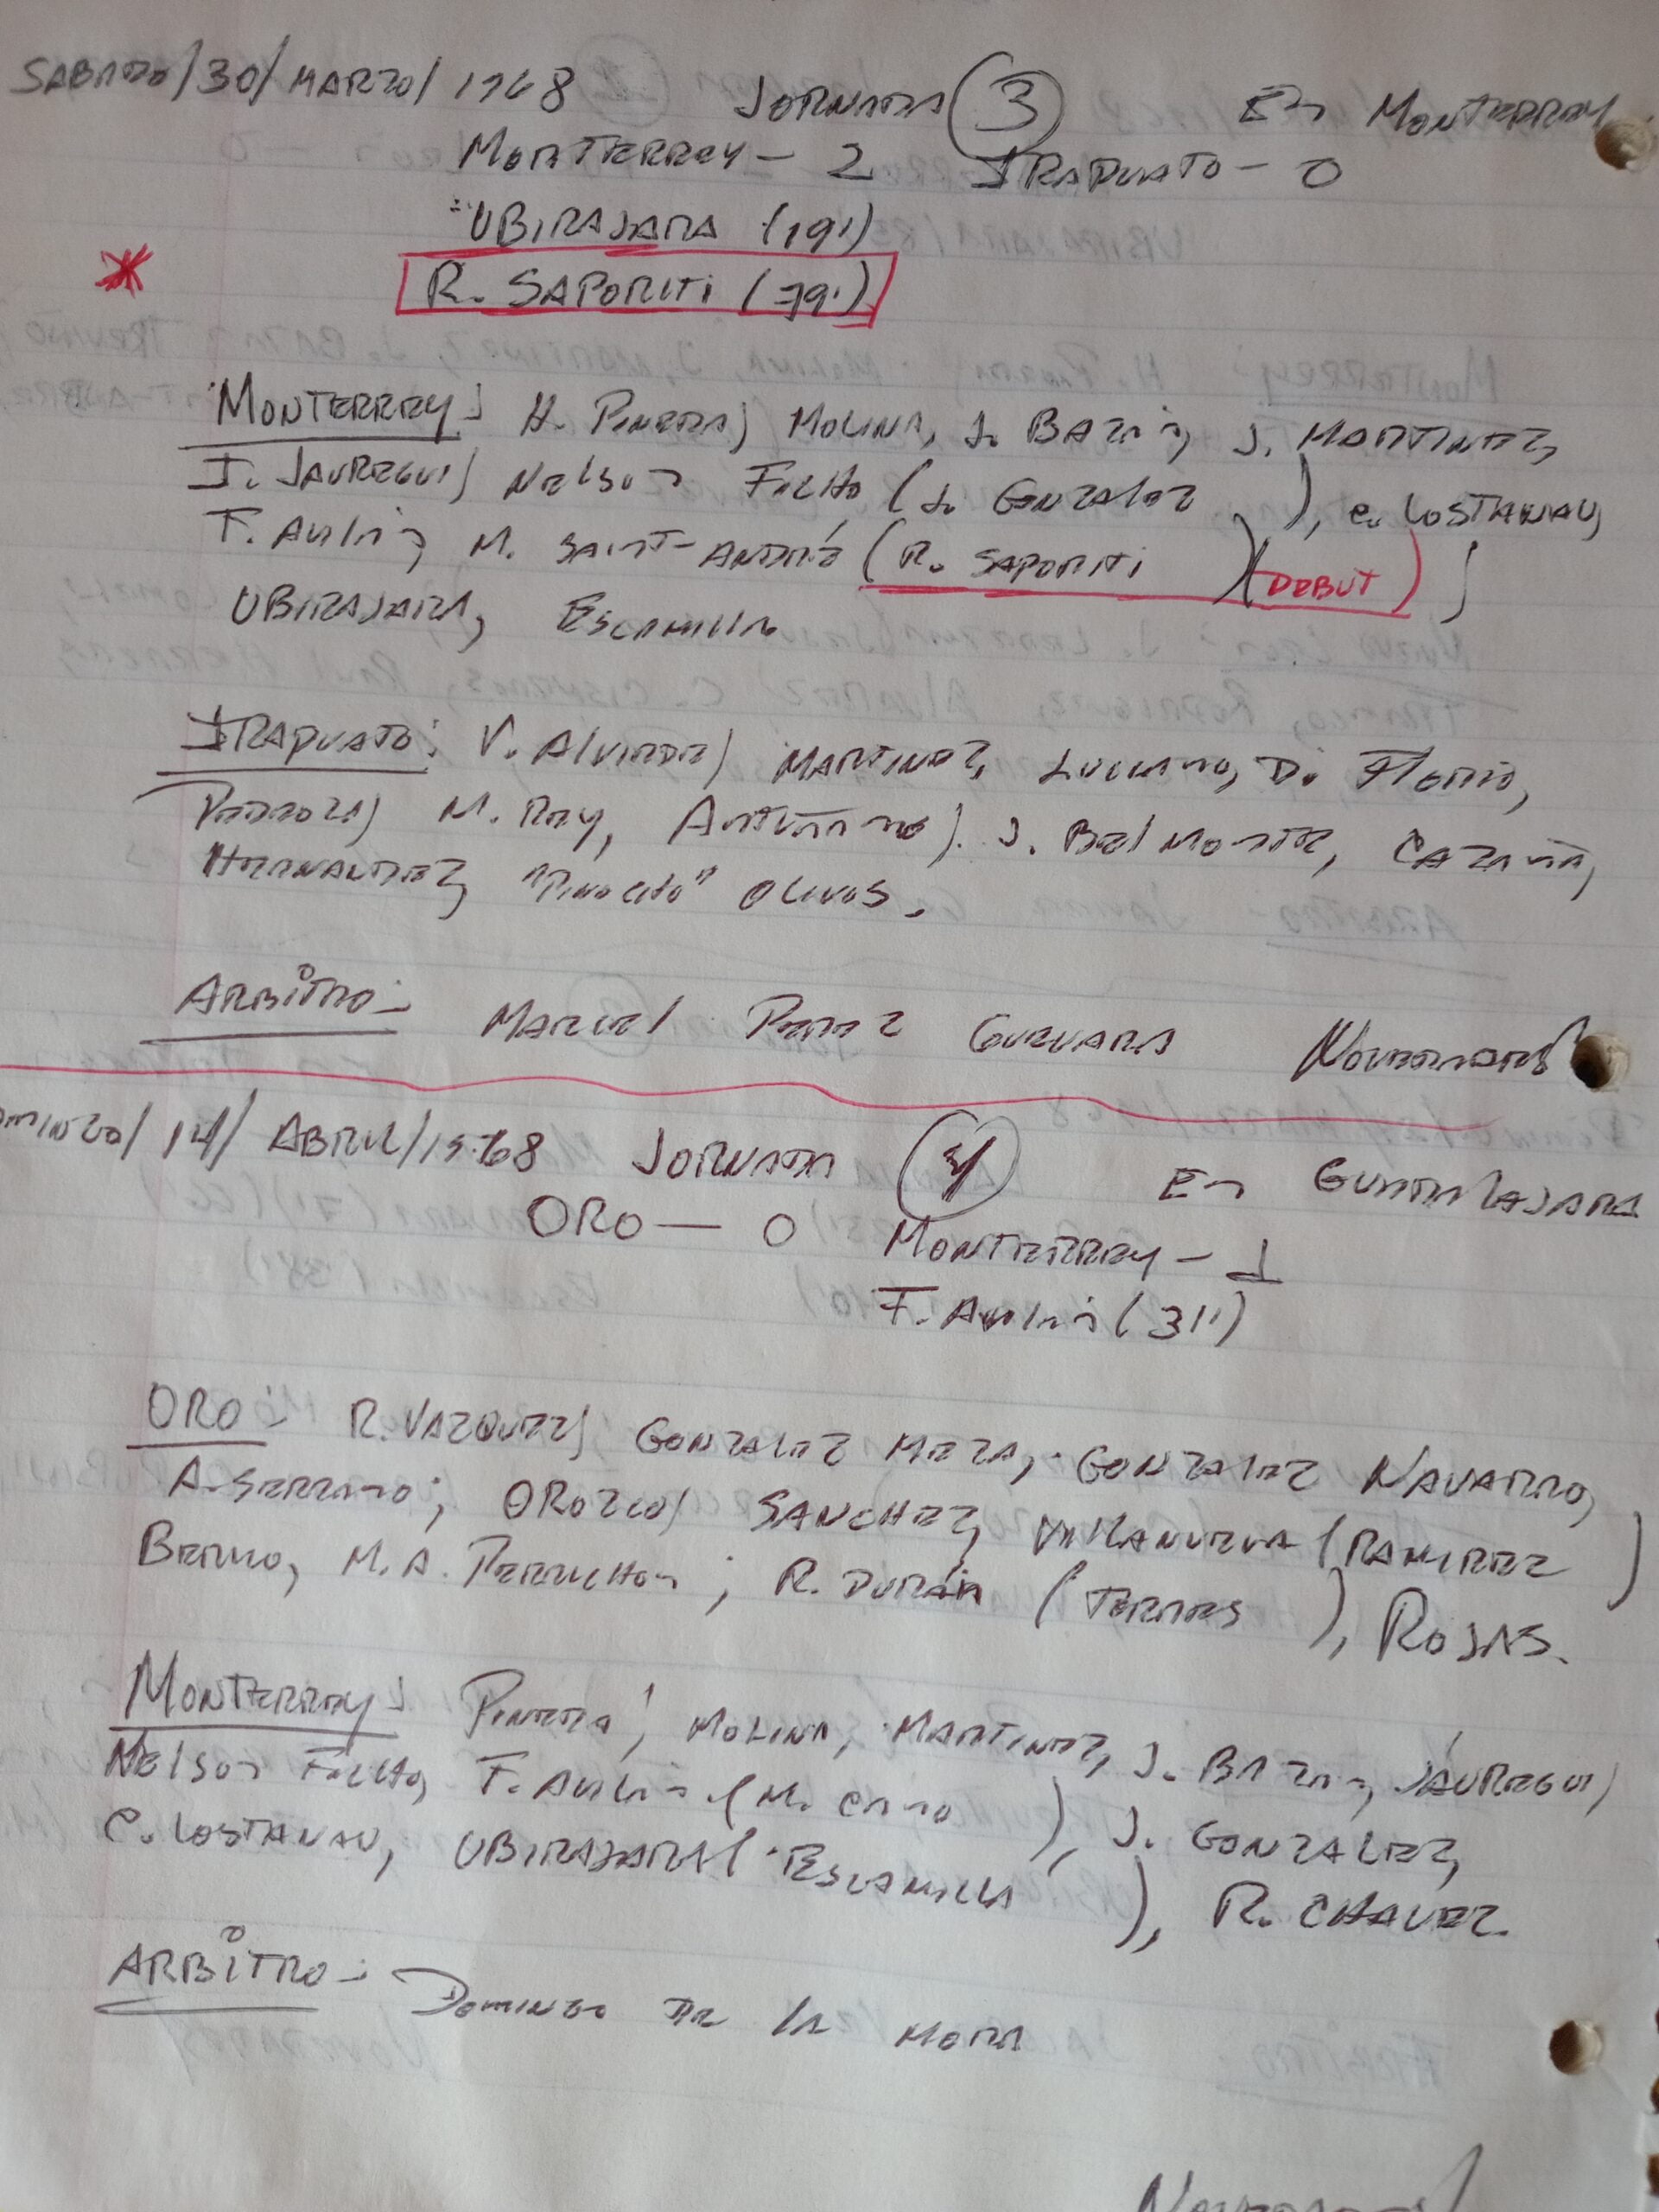 SABADO/30/MARZO/1968 JORNADA (3) En MONTERREY
MONTERREY - 2 IRAPUATO - 0
UBIRAJARA (19')
* R. SAPORITI (79')
MONTERREY: H. PINEDA; MOLINA, J. BAZAN, J. MARTINEZ,
I. JAUREGUI; NELSON FILHO (J. GONZALEZ ), C. LOSTANAU,
F. AVILAN, M. SAINT-ANDRÉ (R. SAPORITI )(DEBUT);
UBIRAJARA, ESCAMILLA
IRAPUATO: V. ALVIRDE; MARTINEZ, LUCIANO, DI FLORIO,
PEDROZA; M. REY, ; J. BELMONTE,
HERNANDEZ, "PINOCHO" OLIVOS.
ARBITRO - MARCEL PEREZ GUEVARA
DOMINGO/14/ABRIL/1968 JORNADA (4) En GUADALAJARA
ORO — 0 MONTERREY - 1
F. AVILAN (31')
ORO: R. VAZQUEZ; GONZALEZ MEZA, GONZALEZ NAVARRO,
A. SERRANO; OROZCO; SANCHEZ, VILLANUEVA (RAMIREZ )
BERICO, M.A. PERRICHON; R. DURÁN ( ), ROJAS.
MONTERREY: PINEDA; MOLINA, MARTINEZ, J. BAZAN, JAUREGUI;
NELSON FILHO, F. AVILAN (M. CANO ), J. GONZALEZ,
C. LOSTANAU, UBIRAJARA (ESCAMILLA ), R. CHAVEZ.
ARBITRO - DOMINGO DE LA MORA